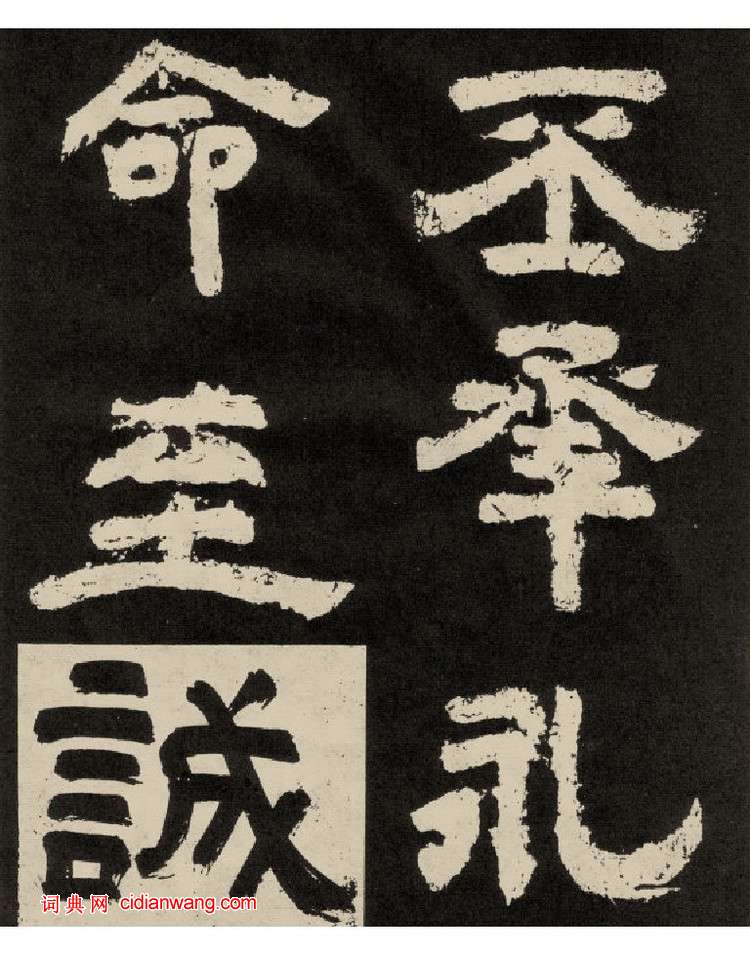 丕承礼
命至誠
词典网 cidianwang.com